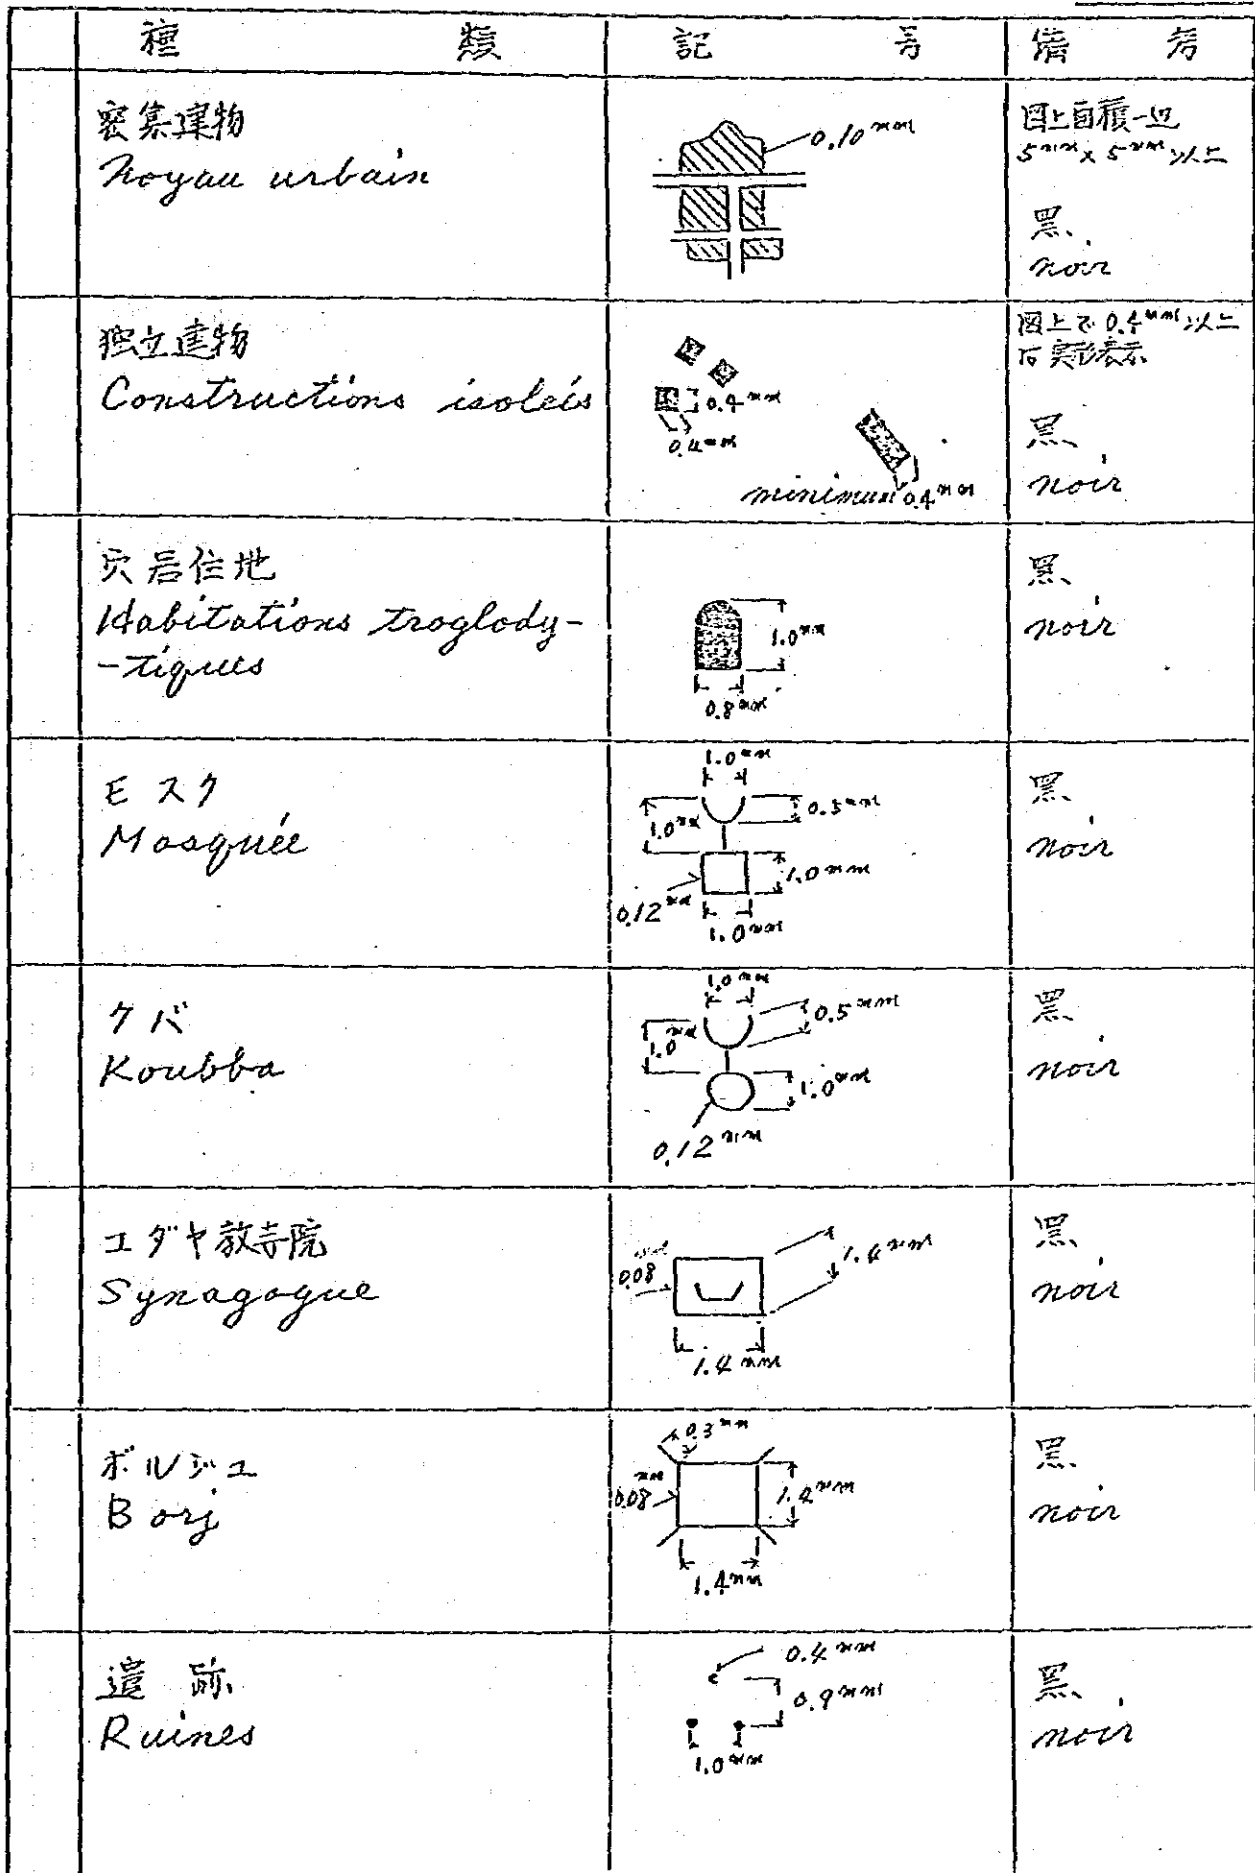 種 類 記 号 備 考
密集建物
Noyau urbain
0.10mm
図上面積一辺
5mm x 5mm 以上
黒
noir
独立建物
Constructions isoleis
0.4mm
0.4mm
minimum 0.4mm
図上で 0.4mm 以上
は実形表示
黒
noir
穴居住地
Habitations troglody-
-tiques
1.0mm
0.8mm
黒
noir
モスク
Mosquée
1.0mm
0.5mm
1.0mm
1.0mm
0.12mm
1.0mm
黒
noir
クバ
Koubba
1.0mm
0.5mm
1.0mm
1.0mm
0.12mm
黒
noir
エダヤ教寺院
Synagogue
0.08mm
1.4mm
1.4mm
黒
noir
ボルジュ
Borj
0.3mm
0.08mm
1.4mm
1.4mm
黒
noir
遺跡
Ruines
0.4mm
0.9mm
1.0mm
黒
noir